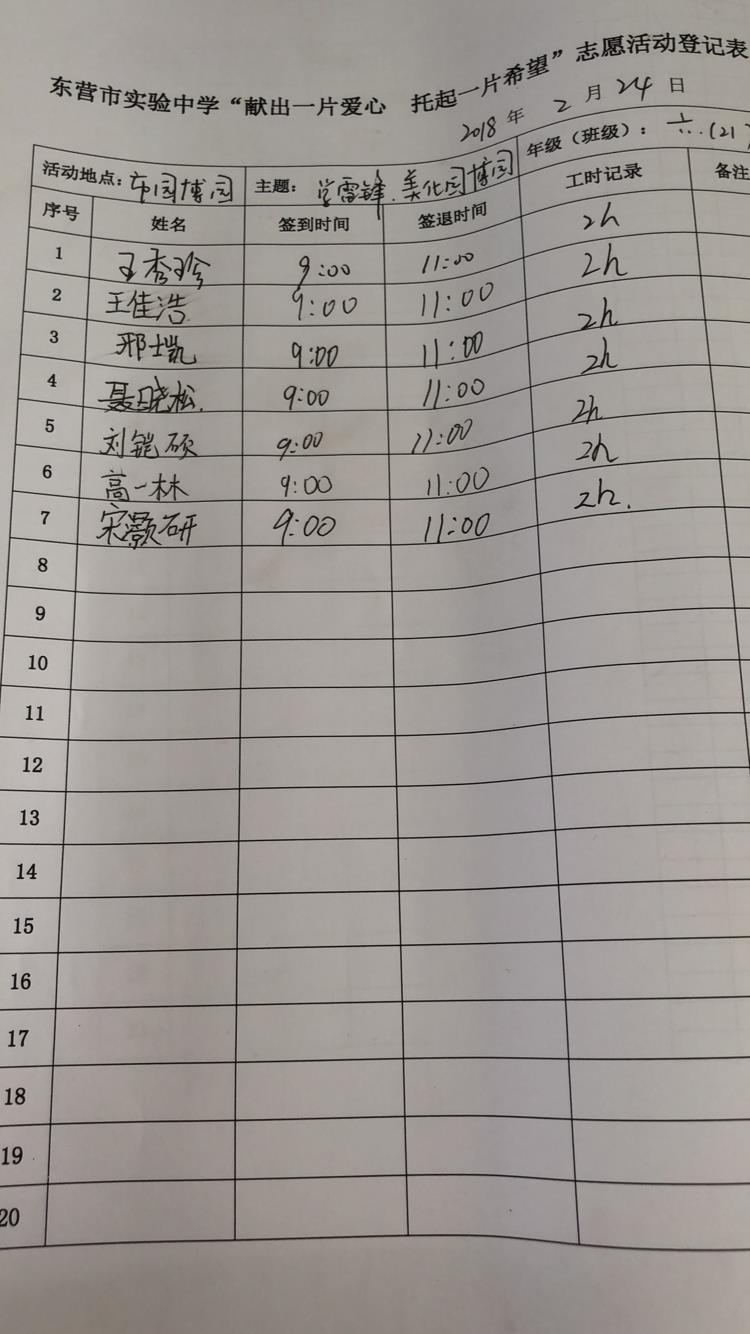 东营市实验中学“献出一片爱心 托起一片希望”志愿活动登记表
2018 年 2 月 24 日
活动地点：市园博园 主题：学雷锋．美化园博园 年级（班级）：六．（21）
序号 姓名 签到时间 签退时间 工时记录 备注
1 王秀珍 9:00 11:00 2h
2 王佳浩 9:00 11:00 2h
3 邢士凯 9:00 11:00 2h
4 聂晓松. 9:00 11:00 2h
5 刘铠硕 9:00 11:00 2h
6 高一林 9:00 11:00 2h
7 宋灏研 9:00 11:00 2h.
8
9
10
11
12
13
14
15
16
17
18
19
20